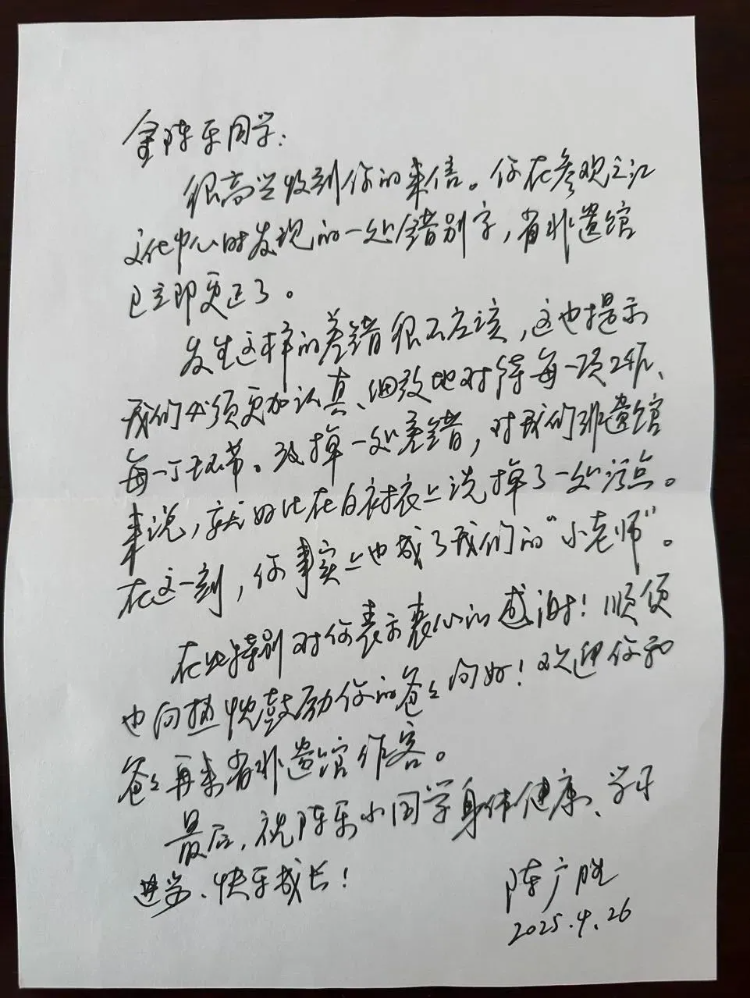 金陈乐同学：
很高兴收到你的来信。你在参观之江
文化中心时发现的一处错别字，省非遗馆
已立即更正了。
发生这样的差错很不应该，这也提示
我们必须更加认真、细致地对待每一项工作、
每一个环节。改掉一处差错，对我们非遗馆
来说，就好比在白衬衣上洗掉了一处污点。
在这一刻，你事实上也成了我们的“小老师”。
在此特别对你表示衷心的感谢！顺便
也向热忱鼓励你的爸爸问好！欢迎你和
爸爸再来省非遗馆作客。
最后，祝陈乐小同学身体健康、学习
进步、快乐成长！
陈广胜
2025.4.26